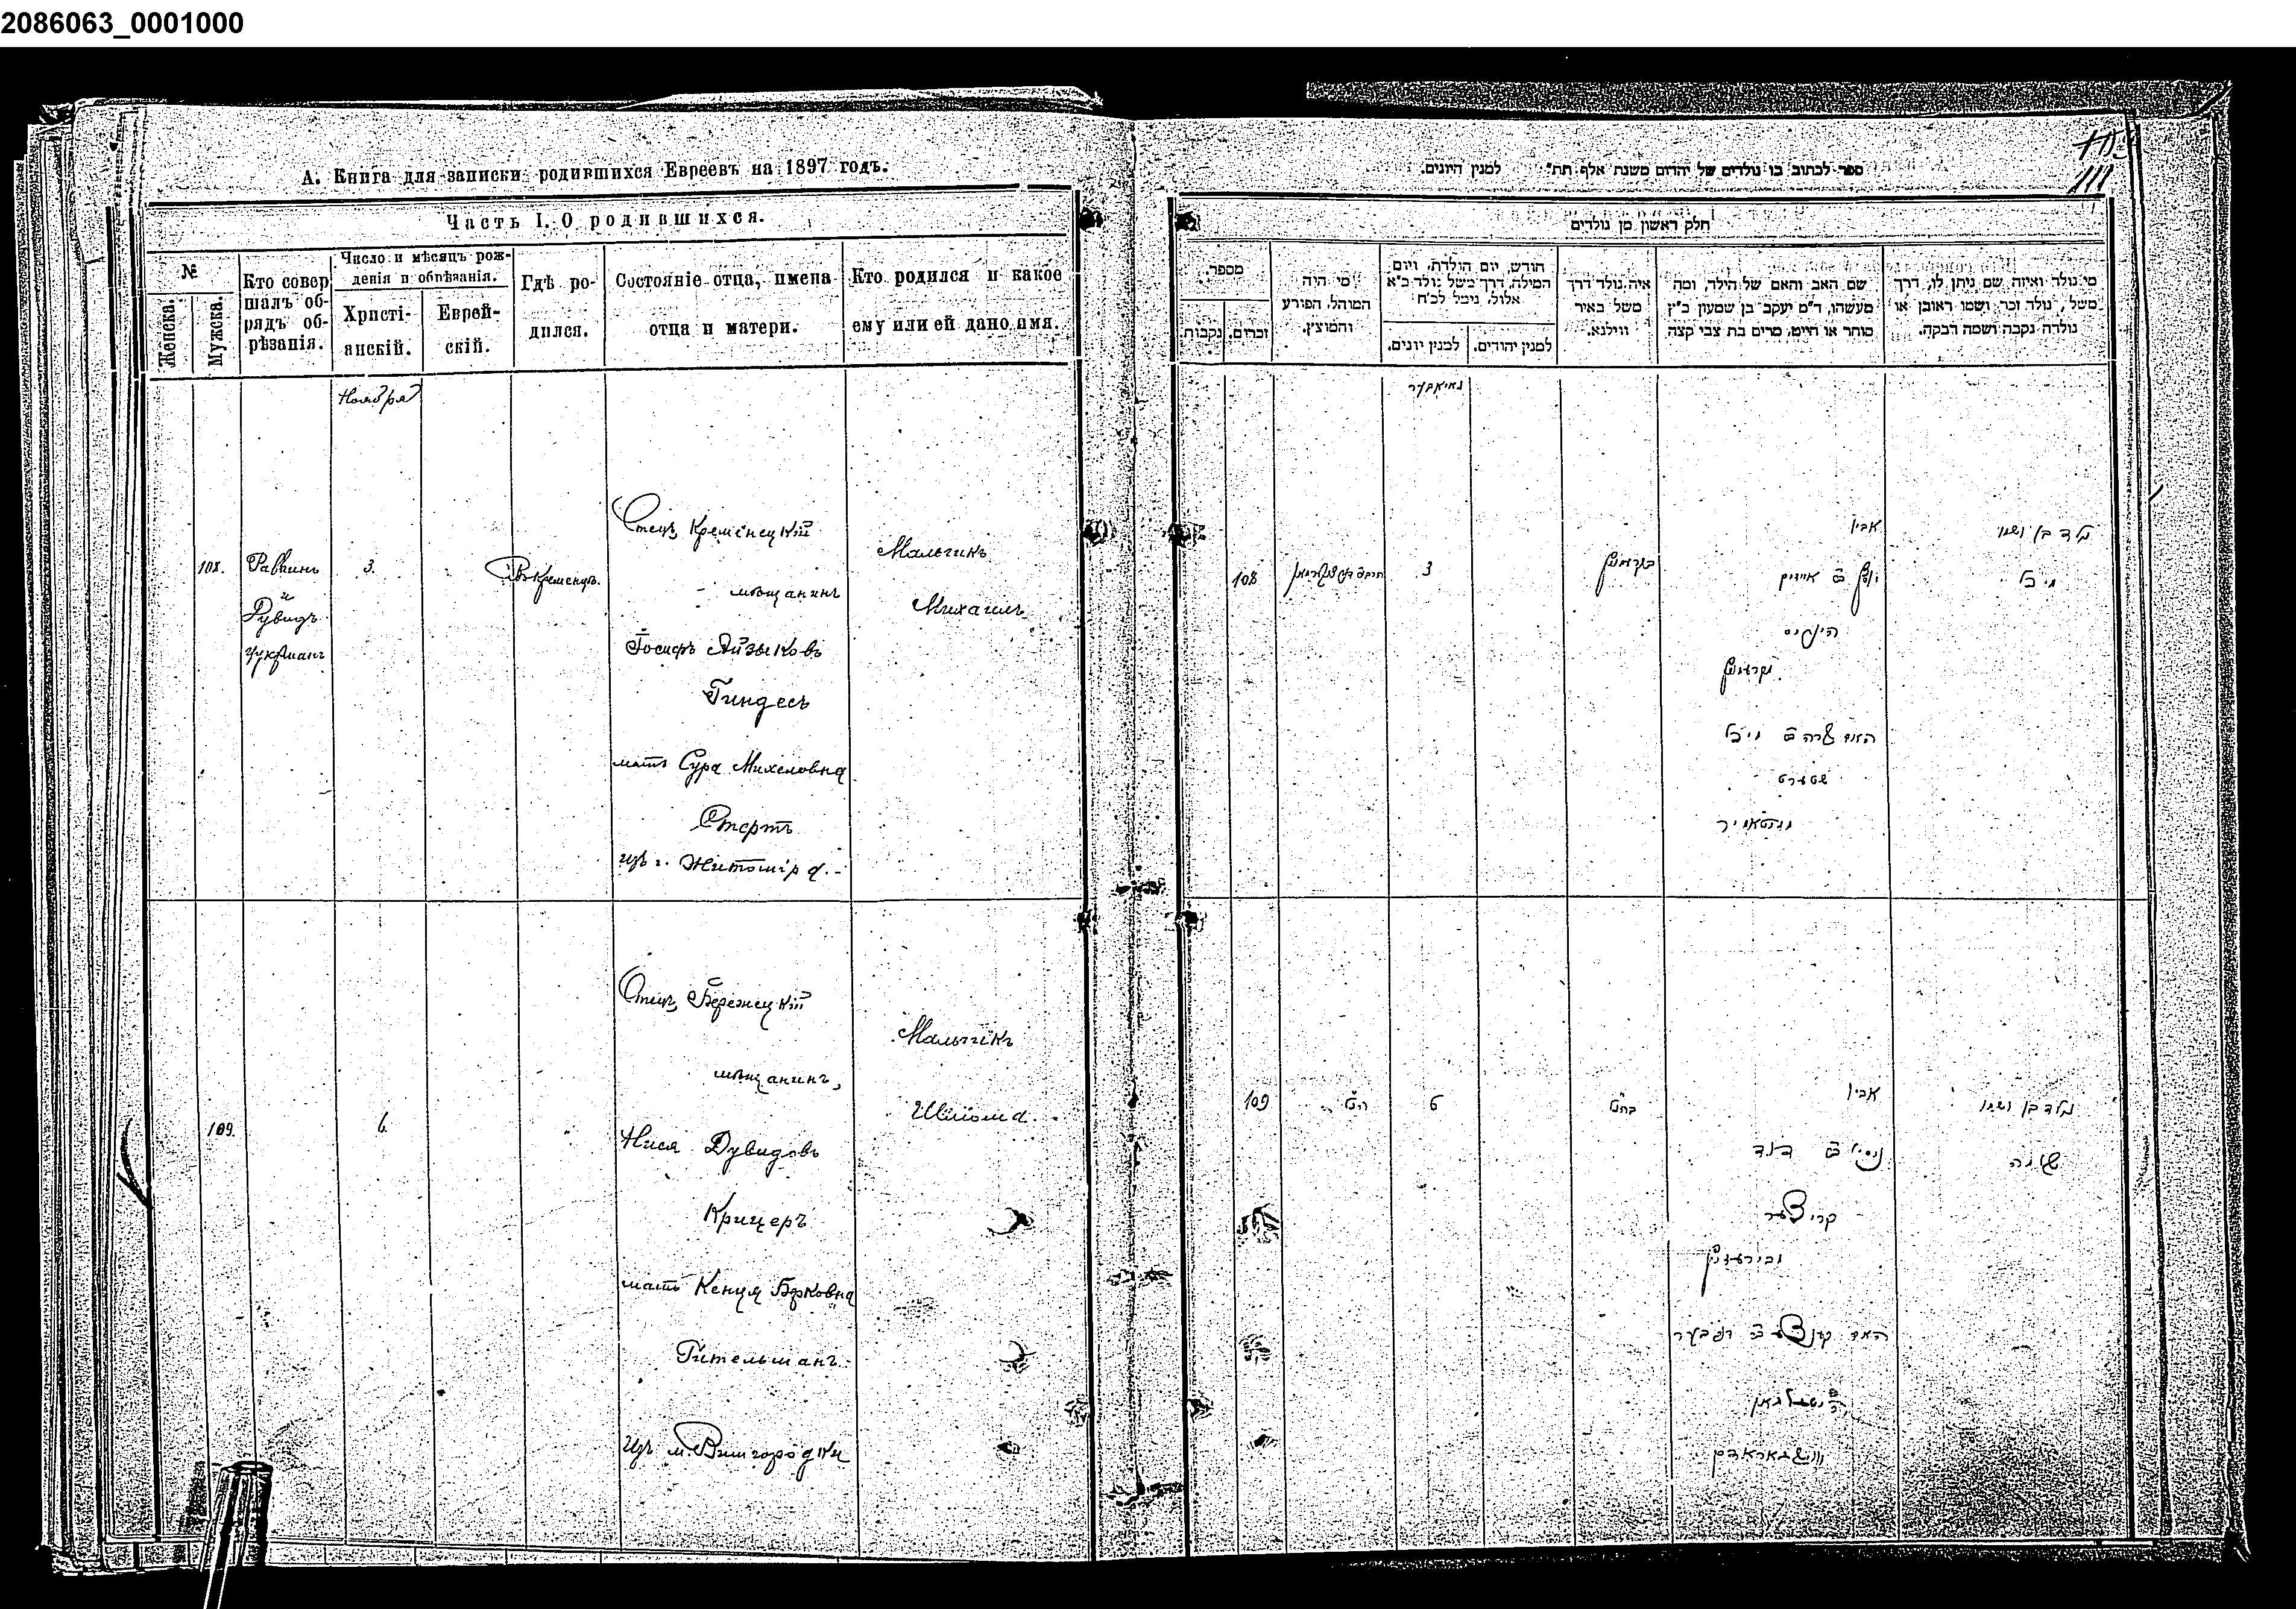 2086063_0001000
А. Книга для записки родившихся Евреевъ на 1897 годъ.
Часть I. О родившихся.
№
Женска.
Мужска.
Кто совер
шалъ об-
рядъ об-
рѣзанія.
Число и мѣсяцъ рож-
денія и обрѣзанія.
Христі-
анскій.
Еврей-
скій.
Гдѣ ро-
дился.
Состояніе отца, имена
отца и матери.
Кто родился и какое
ему или ей дано имя.
Ноября
108.
Раввинъ
и
Дувидъ
Цукрманъ
3.
Въ Кременцѣ.
Отецъ Кременецкій
мѣщанинъ
Іосифъ Айзыковъ
Гиндесъ
мать Сура Михелевна
Стертъ
изъ г. Житоміра.
Мальчикъ
Михаилъ
109.
6.
Отецъ Бережецкій
мѣщанинъ,
Нися Дувидовъ
Крицеръ
мать Кенця Берковна
Гительманъ
изъ м. Вишгородки
Мальчикъ
Шліома
ספר לכתוב בו נולדים של יהודים משנת אלף תת״ למנין היונים.
111
חלק ראשון מן נולדים
מספר.
נקבות
זכרים.
מי היה
המוהל, הפורע
והמוצץ.
חודש, יום הולדת, ויום
המילה, דרך משל נולד כ״א
אלול, נימל לכ״ח
למנין יונים.
למנין יהודים.
איה נולד דרך
משל באיר
ווילנא.
שם האב והאם של הילד, ומה
מעשהו, ד״מ יעקב בן שמעון כ״ץ
סוחר או חייט, מרים בת צבי קצה
מי נולד ואיזה שם ניתן לו, דרך
משל, נולד זכר ושמו ראובן או
נולדה נקבה ושמה רבקה.
נאיאבער
108
3
אביו
הינדיס
שטערט
נולד בן ושמו
מיכל
109
6
אביו
קריצער
נולד בן ושמו
שלמה